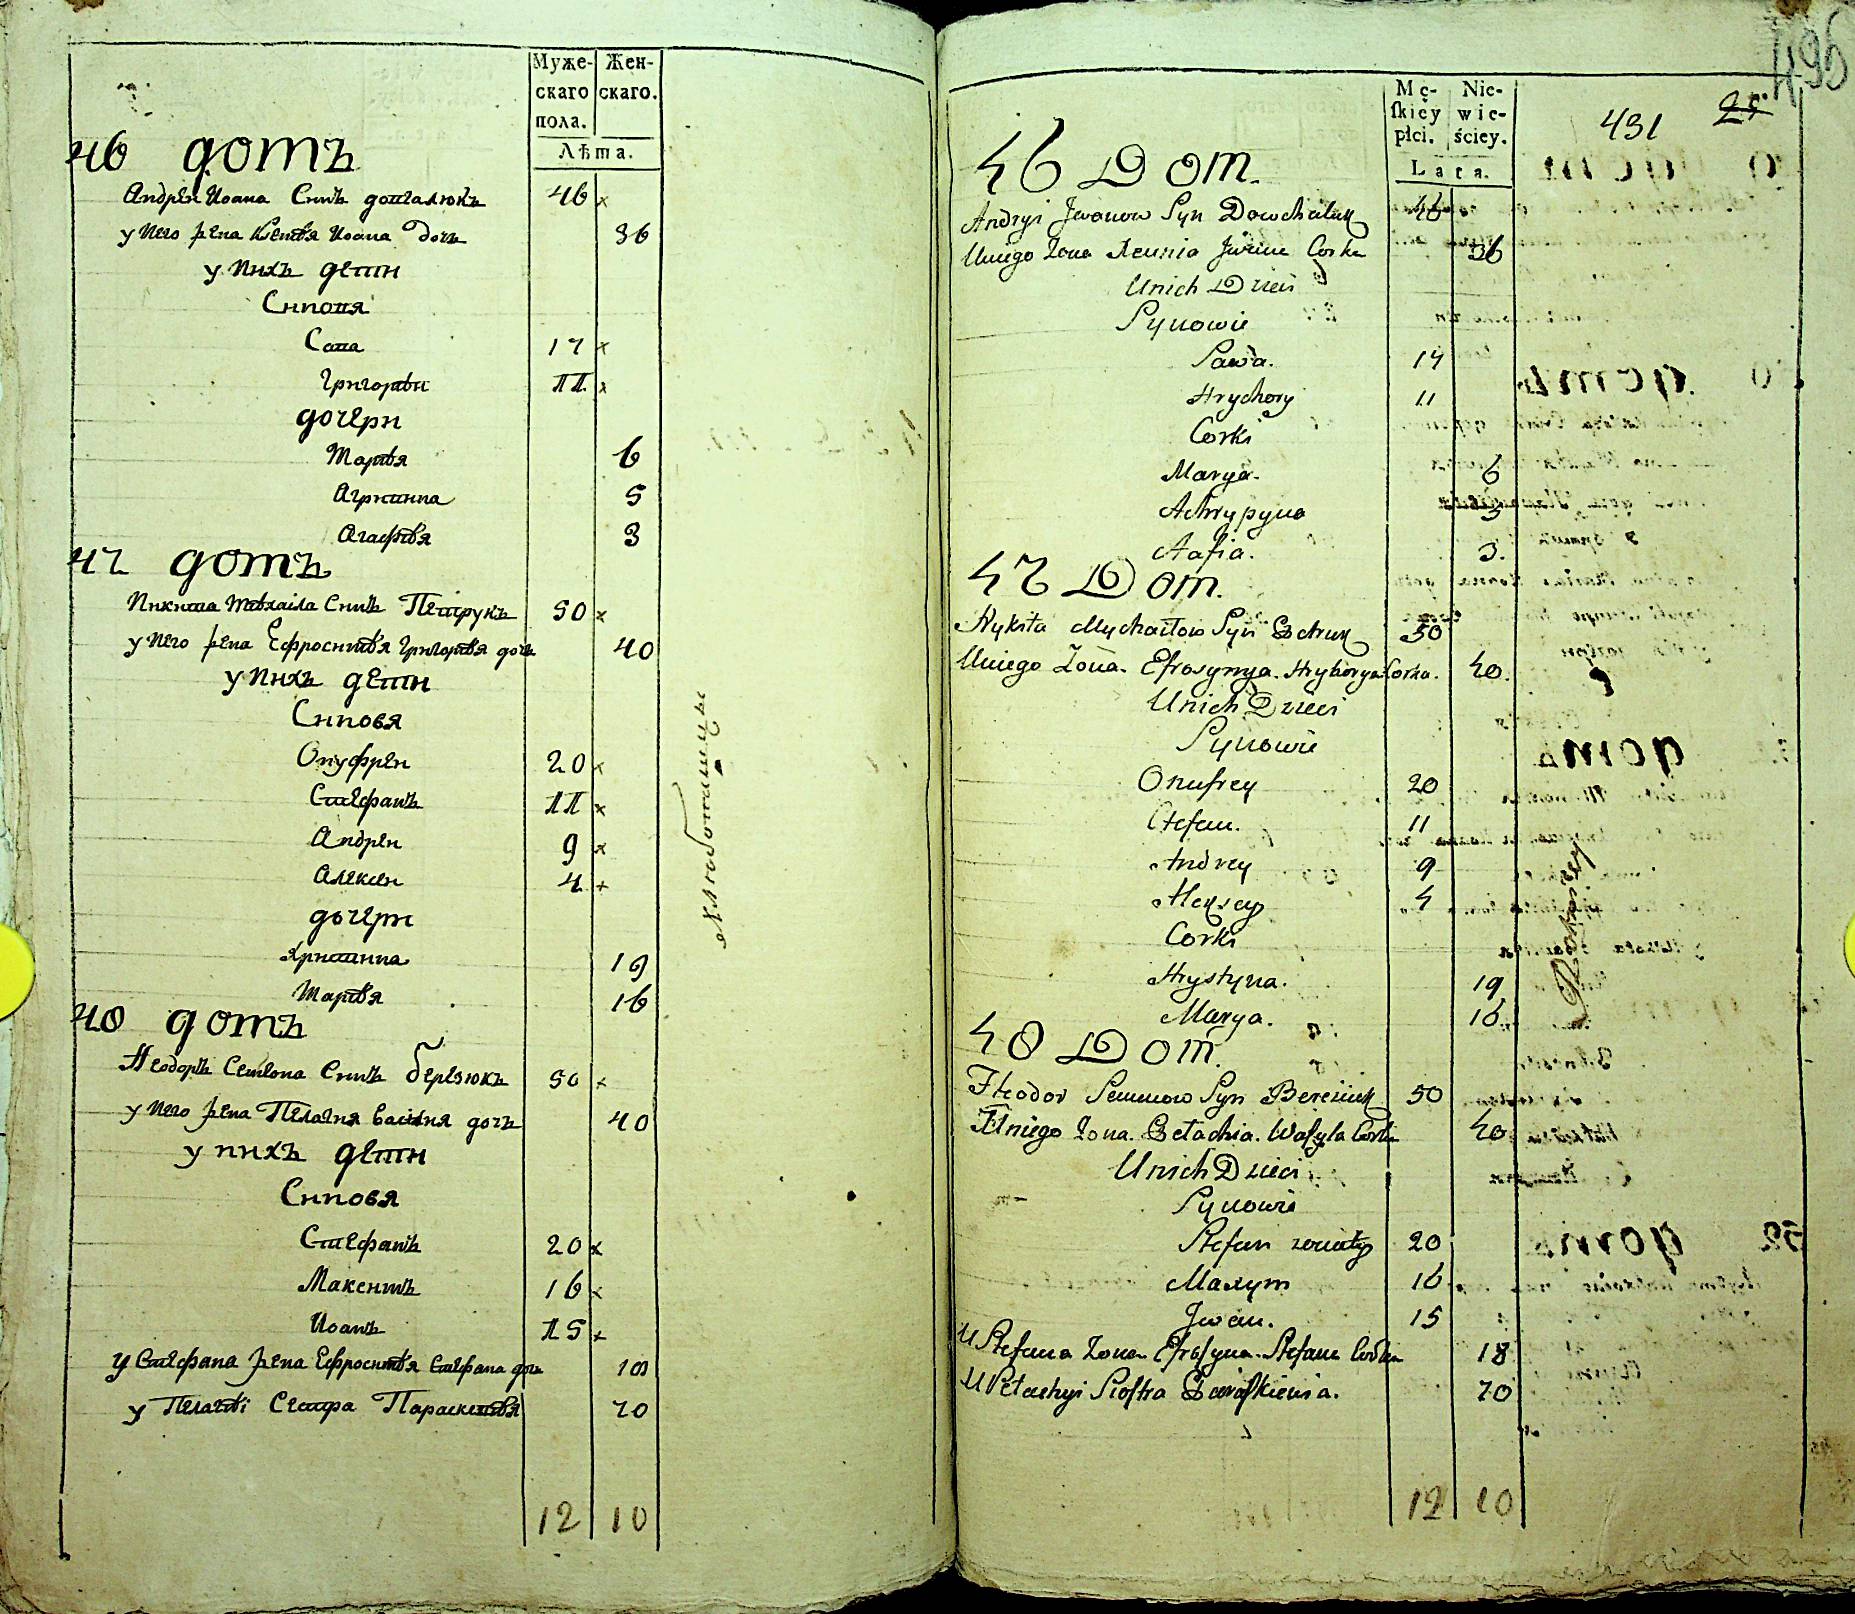 Муже-
скаго
пола.
Жен-
скаго.
Лѣта.
46 домъ
Андрей Иоана Синъ довгалюкъ 46 ×
у него жена Ксенѣя Иоана дочь 36
у нихъ дети
Синовя
Сава 17 ×
Григорѣй 11 ×
дочери
Марѣя 6
Агрипина 5
Агафѣя 3
47 домъ
Никита Мѣхаіла Синъ Петрукъ 50 ×
у него жена Ефросинѣя Григорѣя дочь 40
у нихъ дети
Синовя
Онуфрей 20 ×
Стефанъ 11 ×
Андрей 9 ×
Алексей 4 +
дочери
Христина 19
Марѣя 16
48 домъ
Ѳеодоръ Семена Синъ березюкъ 50 ×
у него жена Пелагия Василия дочь 40
у нихъ дети
Синовя
Стефанъ 20 ×
Максимъ 16 ×
Иоанъ 15 ×
у Стефана жена Ефросинѣя Стефана дочь 18
у Пелагѣі Сестра Параскевѣя 70
12 10
Mę-
ſkiey
płci.
Nie-
wie-
ściey.
Lata.
431
495
46 Dom.
Andryi Jwanow Syn Dowhaluk 46
Uniego Zona Xennia Jwana Corka 36
Unich Dzieci
Synowie
Sawa. 17
Hryhory 11
Corki
Marya. 6
Ahrypyna 5
Aafia. 3.
47 Dom.
Nykita Mychaiłow Syn Petruk 50
Uniego Zona. Efrosynya. Hryhorya Corka. 40.
Unich Dzieci
Synowie
Onufrey 20
Stefan. 11
Andrey 9
Alexey 4
Corki
Hrystyna. 19
Marya. 16
48 Dom.
Fteodor Semenow Syn Bereziuk 50
Uniego Zona. Pelachia. Wasyla Corka 40
Unich Dzieci
Synowie
Stefan zonaty 20
Maxym 16
Jwan. 15
U Stefana Zona Efrosyna. Stefana Corka 18
U Pelachyi Siostra Paraskiewia. 70
12 10